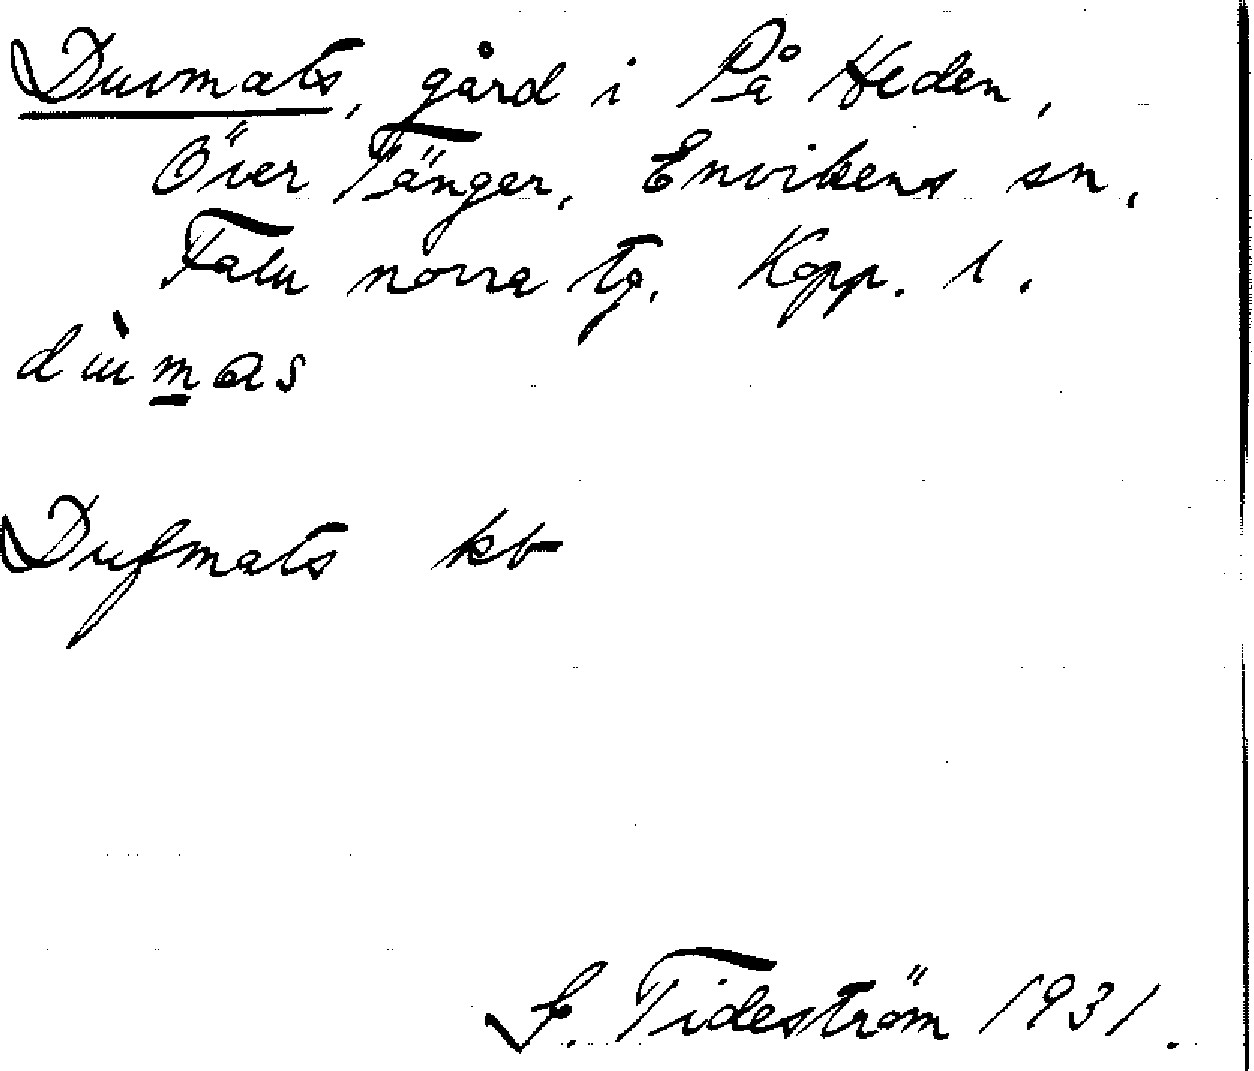 Duvmats, gård i På Heden,
Över Tänger, Envikens sn,
Falu norra tg. Kopp. l.
dùmas
Dufmats kb
G. Tideström 1931.